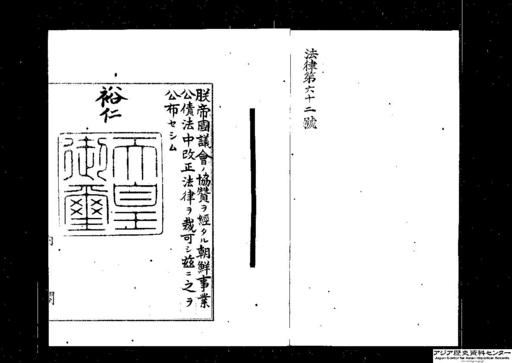 法律第六十二號
朕帝國議會ノ協贊ヲ經タル朝鮮事業
公債法中改正法律ヲ裁可シ茲ニ之ヲ
公布セシム
裕仁
天皇
御璽
内
閣
アジア歴史資料センター
Japan Center for Asian Historical Records